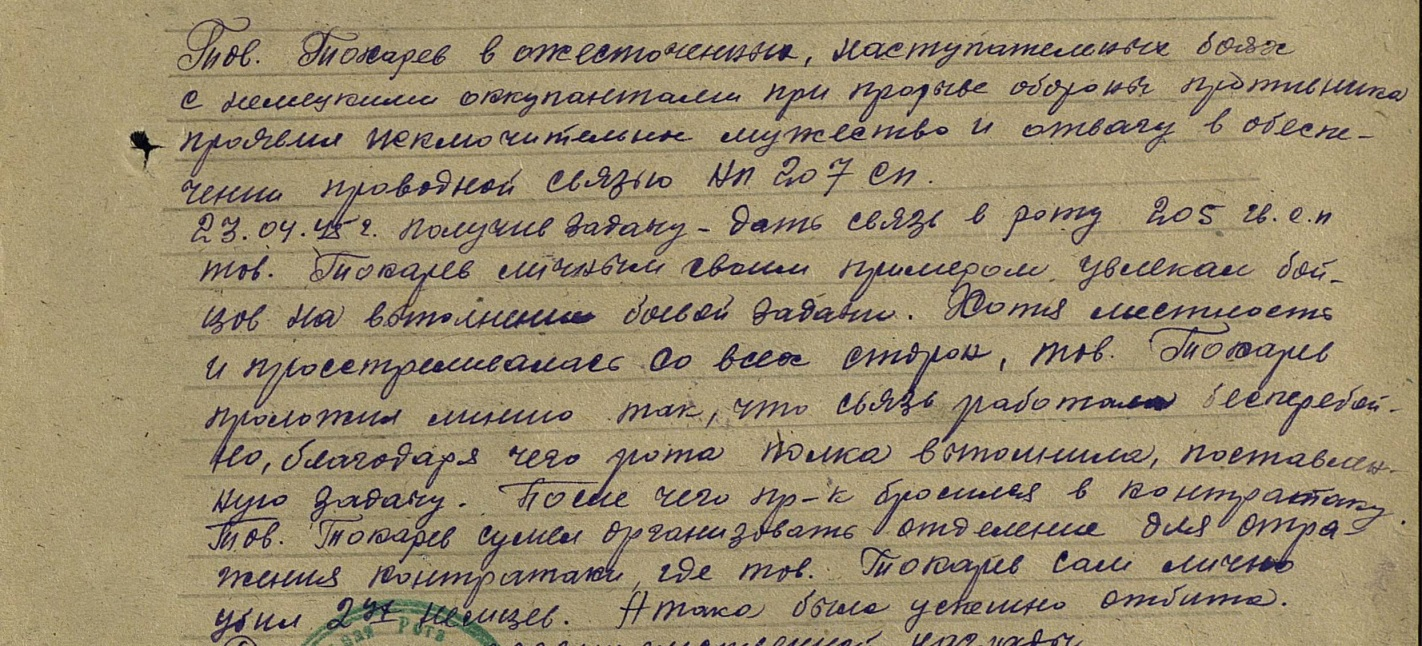 Тов. Токарев в ожесточенных, наступательных боях
с немецкими оккупантами при прорыве обороны противника
проявил исключительно мужество и отвагу в обеспе-
чении проводной связью НП 207 сп.
23.04.45 г. получив задачу - дать связь в роту 205 гв. с.п
тов. Токарев личным своим примером увлекал бой-
цов на выполнение боевой задачи. Хотя местность
и просстреливалась со всех сторон, тов. Токарев
проложил линию так, что связь работала бесперебой-
но, благодаря чего рота полка выполнила, поставлен-
ную задачу. После чего пр-к бросился в контратаку.
Тов. Токарев сумел организовать отделение для отра-
жения контратаки, где тов. Токарев сам лично
убил 2ух немцев. Атака была успешно отбита.
ная Рота